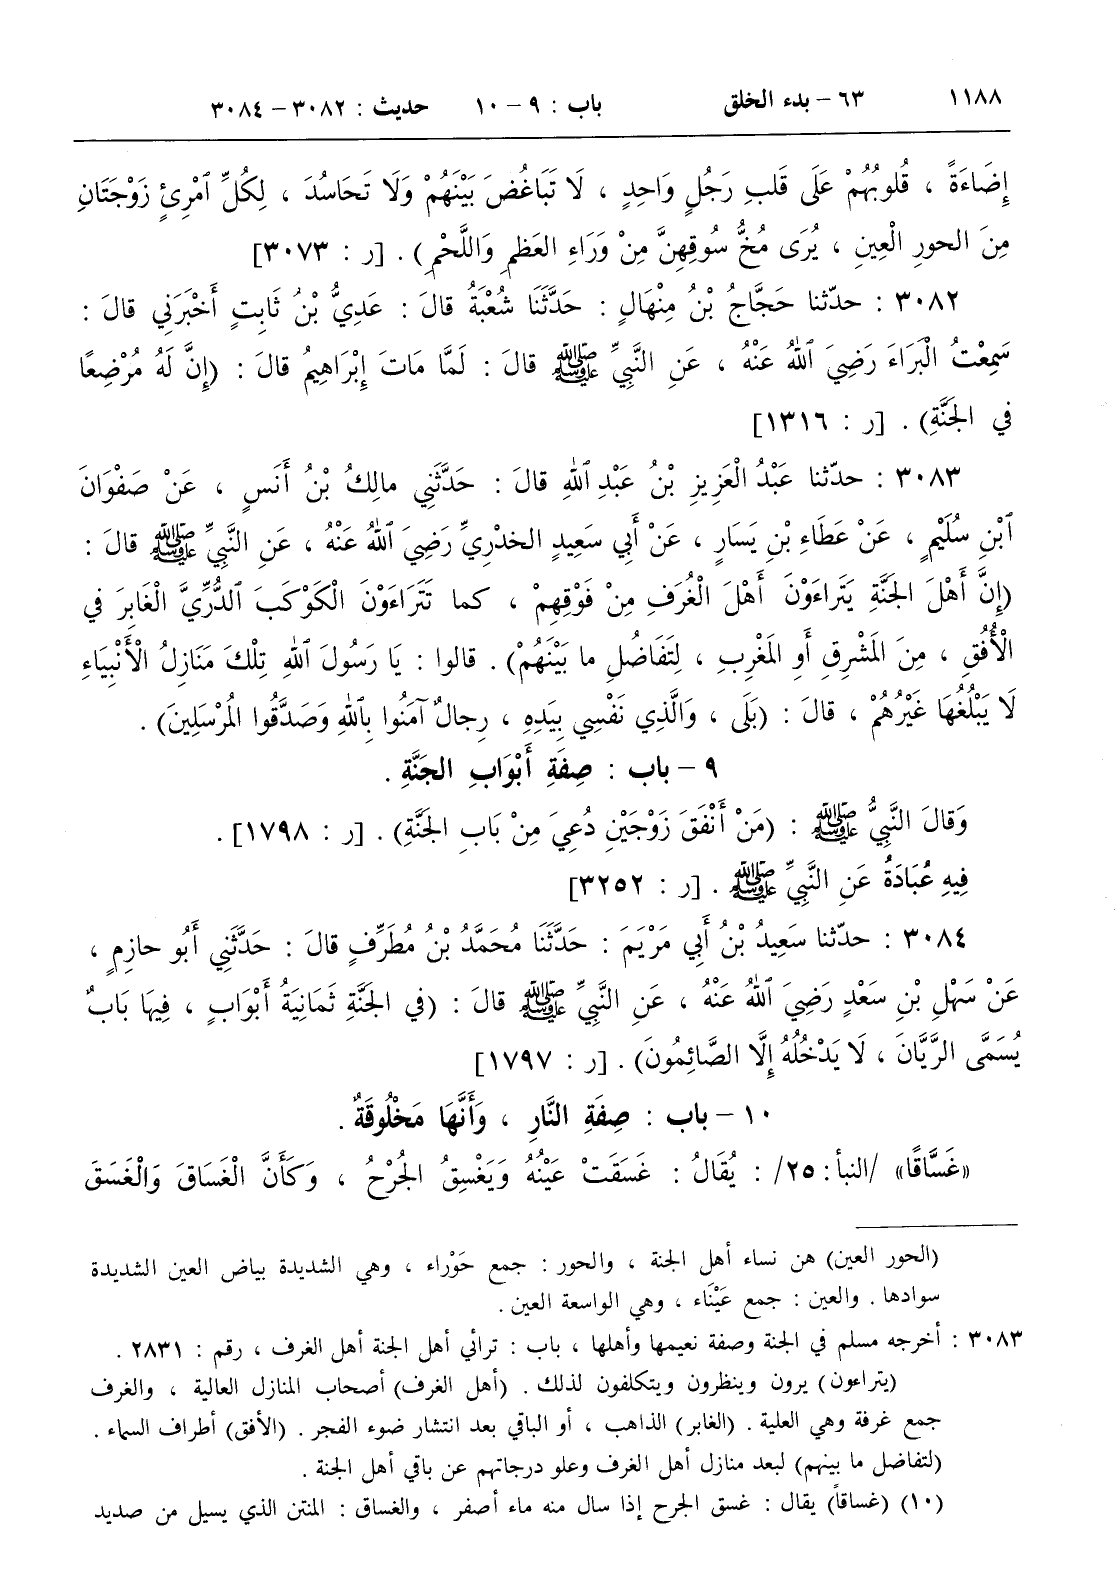 ١١٨٨ ٦٣ – بدء الخلق باب : ٩ – ١٠ حديث : ٣٠٨٢ – ٣٠٨٤
إِضَاءَةً ، قُلُوبُهُمْ عَلَى قَلبِ رَجُلٍ وَاحِدٍ ، لَا تَبَاغُضَ بَيْنَهُمْ وَلَا تَحَاسُدَ ، لِكُلِّ ٱمْرِئٍ زَوْجَتَانِ
مِنَ الحورِ الْعِينِ ، يُرَى مُخُّ سُوقِهِنَّ مِنْ وَرَاءِ العَظمِ وَاللَّحْمِ) . [ر : ٣٠٧٣]
٣٠٨٢ : حدّثنا حَجَّاجُ بْنُ مِنْهَالٍ : حَدَّثَنَا شُعْبَةُ قالَ : عَدِيُّ بْنُ ثَابِتٍ أَخْبَرَنِي قالَ :
سَمِعْتُ الْبَرَاءَ رَضِيَ ٱللهُ عَنْهُ ، عَنِ النَّبِيِّ ﷺ قالَ : لَمَّا مَاتَ إِبْرَاهِيمُ قالَ : (إِنَّ لَهُ مُرْضِعًا
في الجَنَّةِ) . [ر : ١٣١٦]
٣٠٨٣ : حدّثنا عَبْدُ الْعَزِيزِ بْنُ عَبْدِ ٱللهِ قالَ : حَدَّثَنِي مالِكُ بْنُ أَنَسٍ ، عَنْ صَفْوَانَ
ٱبْنِ سُلَيْمٍ ، عَنْ عَطَاءِ بْنِ يَسَارٍ ، عَنْ أَبِي سَعِيدٍ الخدْرِيِّ رَضِيَ ٱللهُ عَنْهُ ، عَنِ النَّبِيِّ ﷺ قالَ :
(إِنَّ أَهْلَ الجَنَّةِ يَتَرَاءَوْنَ أَهْلَ الْغُرَفِ مِنْ فَوْقِهِمْ ، كما تَتَرَاءَوْنَ الْكَوْكَبَ ٱلدُّرِّيَّ الْغَابِرَ في
الْأُفُقِ ، مِنَ المَشْرِقِ أَوِ المَغْرِبِ ، لِتَفَاضُلِ ما بَيْنَهُمْ) . قالوا : يَا رَسُولَ ٱللهِ تِلْكَ مَنَازِلُ الْأَنْبِيَاءِ
لَا يَبْلُغُهَا غَيْرُهُمْ ، قالَ : (بَلَى ، وَالَّذِي نَفْسِي بِيَدِهِ ، رِجالٌ آمَنُوا بِٱللهِ وَصَدَّقُوا المُرْسَلِينَ) .
٩ – باب : صِفَةِ أَبْوَابِ الجَنَّةِ .
وَقالَ النَّبِيُّ ﷺ : (مَنْ أَنْفَقَ زَوْجَيْنِ دُعِيَ مِنْ بَابِ الجَنَّةِ) . [ر : ١٧٩٨] .
فِيهِ عُبَادَةُ عَنِ النَّبِيِّ ﷺ . [ر : ٣٢٥٢]
٣٠٨٤ : حدّثنا سَعِيدُ بْنُ أَبِي مَرْيَمَ : حَدَّثَنَا مُحَمَّدُ بْنُ مُطَرِّفٍ قالَ : حَدَّثَنِي أَبُو حازِمٍ ،
عَنْ سَهْلِ بْنِ سَعْدٍ رَضِيَ ٱللهُ عَنْهُ ، عَنِ النَّبِيِّ ﷺ قالَ : (في الجَنَّةِ ثَمَانِيَةُ أَبْوَابٍ ، فِيهَا بَابٌ
يُسَمَّى الرَّيَّانَ ، لَا يَدْخُلُهُ إِلَّا الصَّائِمُونَ) . [ر : ١٧٩٧]
١٠ – باب : صِفَةِ النَّارِ ، وَأَنَّهَا مَخْلُوقَةٌ .
«غَسَّاقًا» /النبأ : ٢٥/ : يُقَالُ : غَسَقَتْ عَيْنُهُ وَيَغْسِقُ الجُرْحُ ، وَكَأَنَّ الْغَسَاقَ وَالْغَسَقَ
(الحور العين) هن نساء أهل الجنة ، والحور : جمع حَوْراء ، وهي الشديدة بياض العين الشديدة
سوادها . والعين : جمع عَيْنَاء ، وهي الواسعة العين .
٣٠٨٣ : أخرجه مسلم في الجنة وصفة نعيمها وأهلها ، باب : ترائي أهل الجنة أهل الغرف ، رقم : ٢٨٣١ .
(يتراءون) يرون وينظرون ويتكلفون لذلك . (أهل الغرف) أصحاب المنازل العالية ، والغرف
جمع غرفة وهي العلية . (الغابر) الذاهب ، أو الباقي بعد انتشار ضوء الفجر . (الأفق) أطراف السماء .
(لتفاضل ما بينهم) لبعد منازل أهل الغرف وعلو درجاتهم عن باقي أهل الجنة .
(١٠) (غساقاً) يقال : غسق الجرح إذا سال منه ماء أصفر ، والغساق : المنتن الذي يسيل من صديد